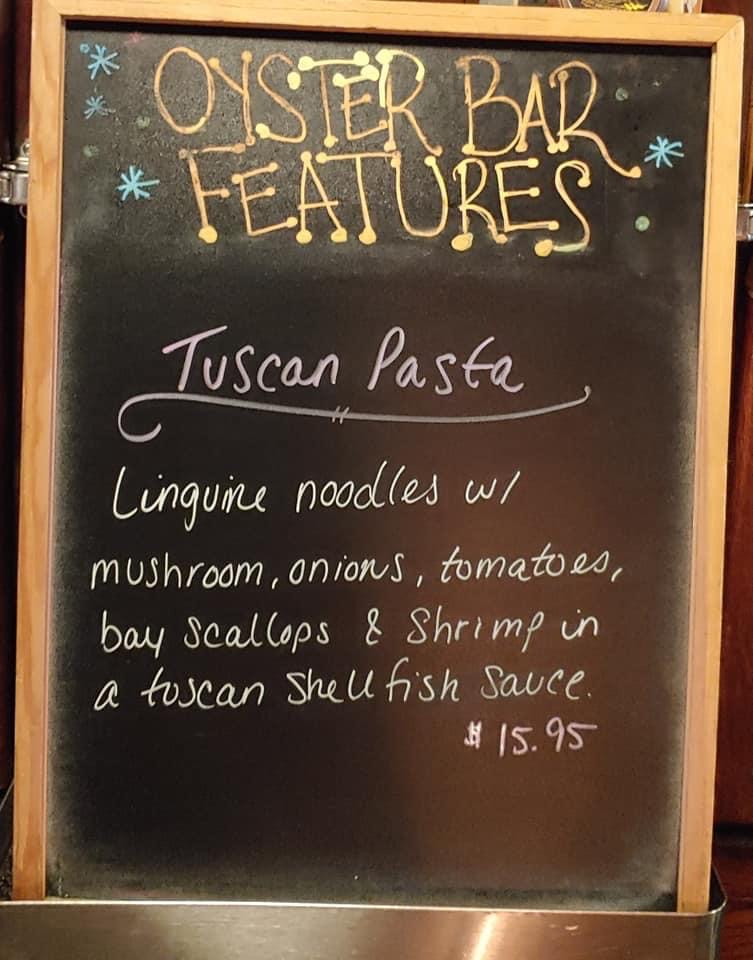 OYSTER BAR
FEATURES
Tuscan Pasta
Linguine noodles w/
mushroom, onions, tomatoes,
bay scallops & Shrimp in
a tuscan shellfish sauce.
$15.95